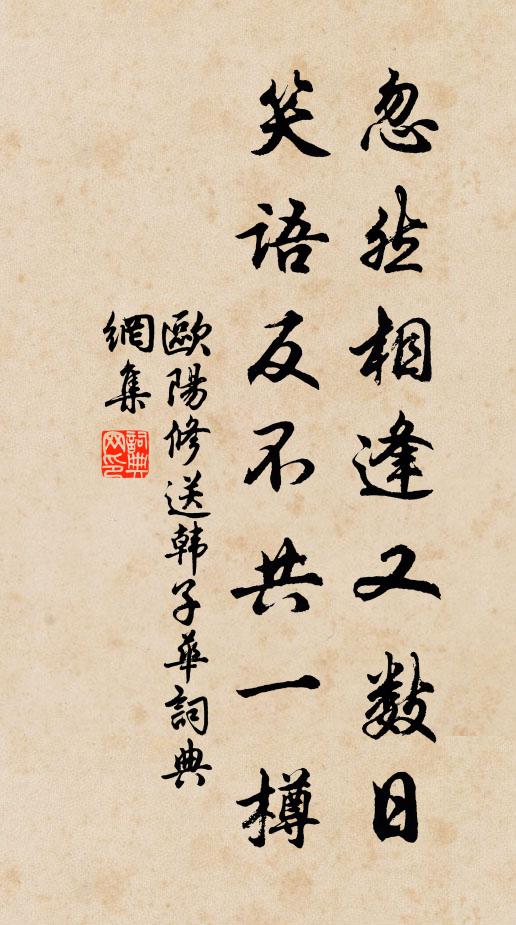 忽然相逢又数日
笑语反不共一樽
歐陽修送韩子華詞典
網集
詞典
网印